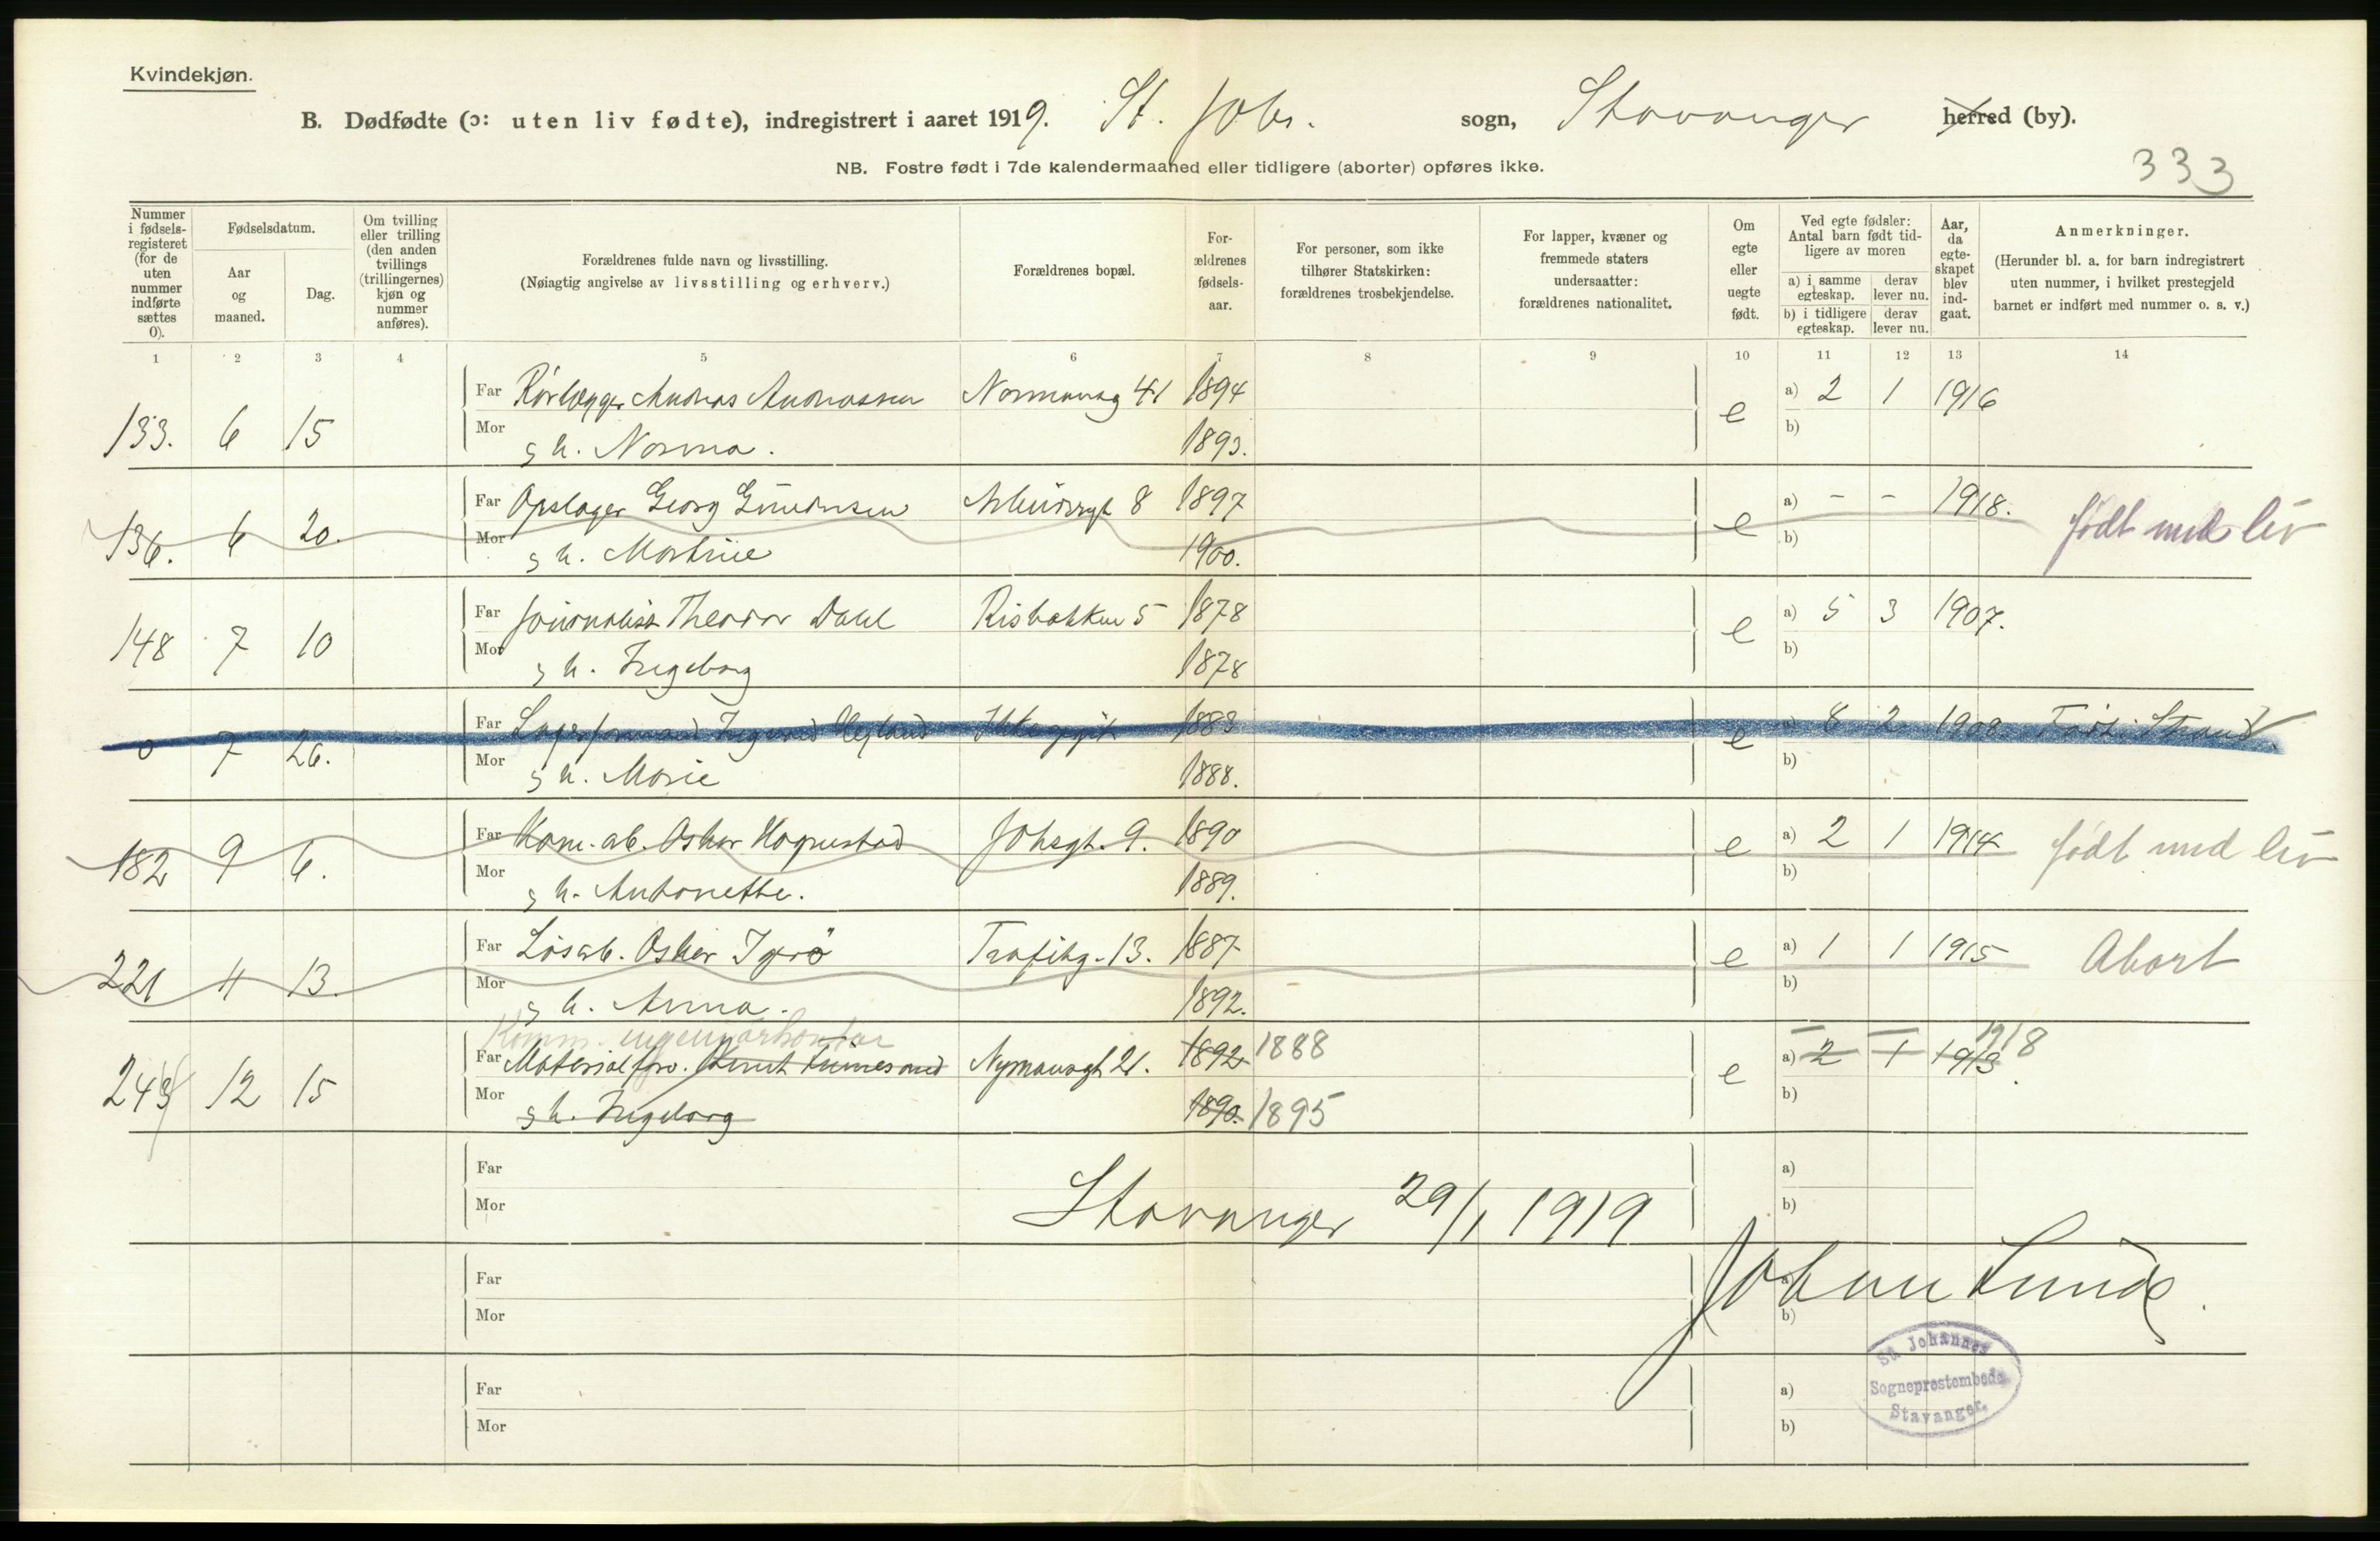 Kvindekjøn.
B. Dødfødte (ɔ: uten liv fødte), indregistrert i aaret 1919. St. Johs. sogn, Stavanger herred (by).
NB. Fostre født i 7de kalendermaaned eller tidligere (aborter) opføres ikke.
333
Nummer i fødsels-registeret (for de uten nummer indførte sættes 0).
Fødselsdatum.
Aar og maaned.
Dag.
Om tvilling eller trilling (den anden tvillings (trillingernes) kjøn og nummer anføres).
Forældrenes fulde navn og livsstilling.
(Nøiagtig angivelse av livsstilling og erhverv.)
Forældrenes bopæl.
For-ældrenes fødsels-aar.
For personer, som ikke tilhører Statskirken: forældrenes trosbekjendelse.
For lapper, kvæner og fremmede staters undersaatter: forældrenes nationalitet.
Om egte eller uegte født.
Ved egte fødsler: Antal barn født tid-ligere av moren
a) i samme egteskap. derav lever nu.
b) i tidligere egteskap. derav lever nu.
Aar, da egte-skapet blev ind-gaat.
Anmerkninger.
(Herunder bl. a. for barn indregistrert uten nummer, i hvilket prestegjeld barnet er indført med nummer o. s. v.)
1 2 3 4 5 6 7 8 9 10 11 12 13 14
133. 6 15 Far Rørlægger Andreas Andreassen Normannsg 41 1894 e a) 2 1 1916
Mor g h. Norma. 1893. b)
136. 6 20. Far Opslager Georg 8 1897 e a) - - 1918. født med liv
Mor g h. Martine 1900. b)
148 7 10 Far Journalist Theodor Dahl Risbakken 5 1878 e a) 5 3 1907.
Mor g h. Ingeborg 1878 b)
0 7 26. Far 1883 e a) 8 2 1908 Strand
Mor g h. Marie 1888. b)
182 9 6. Far Kom. arb. Oskar Hognestad Johsgt. 9. 1890 e a) 2 1 1914 født med liv
Mor g h. Antonette. 1889. b)
221 11 13. Far Løsarb. Oskar Trafikg. 13. 1887 e a) 1 1 1915 Abort
Mor g h. Anna. 1892. b)
Komm. ingeniørkontor
243 12 15 Far Materialforv. Nymansgt 21. 1892 1888 e a) 2 1 1913 1918
Mor g h. Ingeborg 1890. 1895 b)
Far a)
Mor Stavanger 29/1 1919 b)
Far Johan Lunde a)
Mor b)
St. Johannes
Far a) Sogneprestembede
Stavanger.
Mor b)